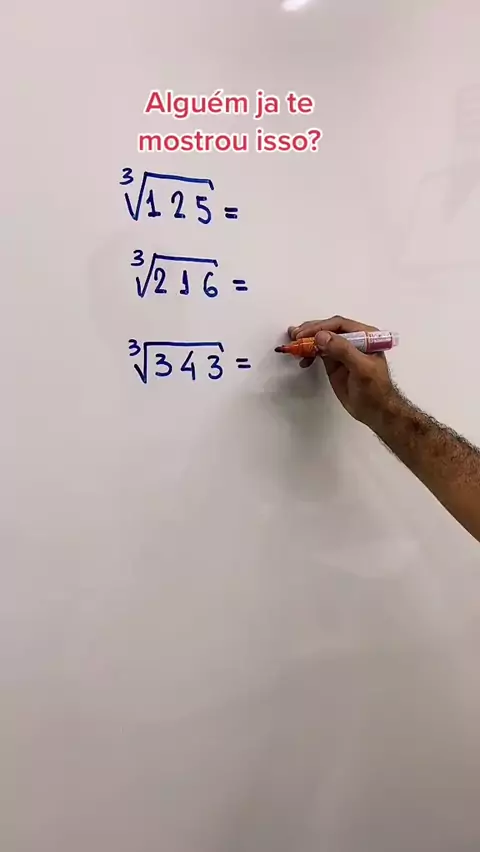 Alguém ja te
mostrou isso?
∛125 =
∛216 =
∛343 =